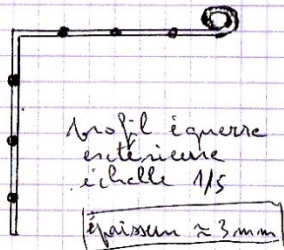 profil équerre
extérieure
échelle 1/5
épaisseur ≈ 3 mm